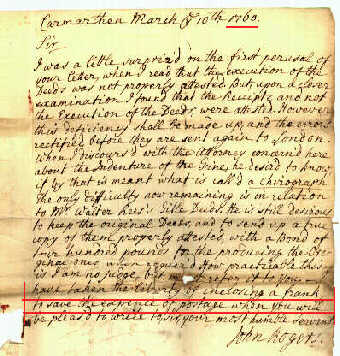 Carmarthen March ye 10th 1760.
Sir
I was a little surpriz'd on the first perusal of
your Letter, when I read that the execution of the
Deeds was not properly attested But, upon a closer
examination I found that the Receipts and not
the Execution of the Deeds were attested However
this deficiency shall be made up, and the error
rectified before they are sent again to London
When I discours'd with the Attorney concern'd here
about the Indenture of the Fine, he desir'd to know
if by that is meant what is call'd a chirograph
the only difficulty now remaining is in relation
to Mr Walter Title Deeds. He is still desirous
to keep the original Deeds, and to send up a true
copy of them properly attested with a bond of
four hundred pounds to the procuring the
once when required How practicable this
is I am no judge, but must refer it to you I
have taken the liberty of inclosing a frank
to save the expence of postage when you will
be pleas'd to write to, Sir, your most humble Servant
John Rogers.